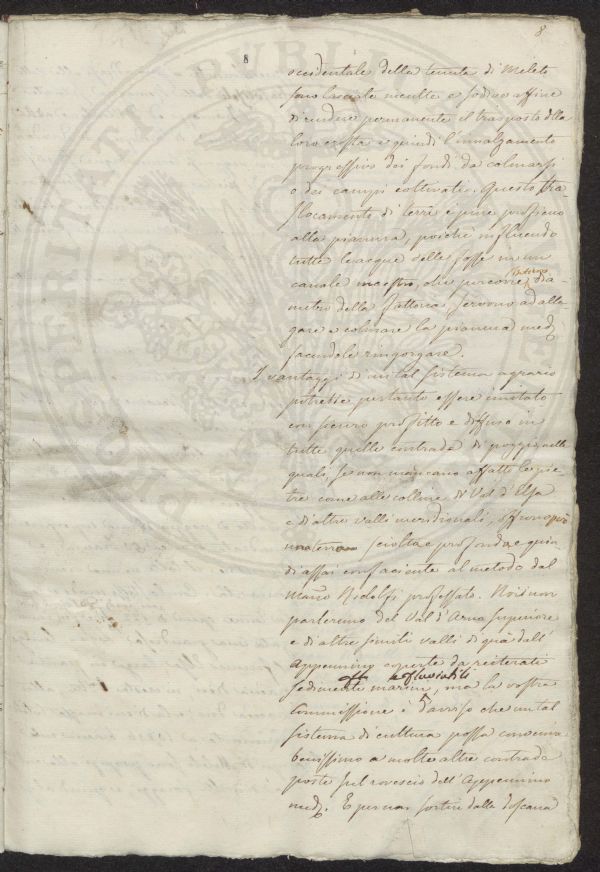 8
8
occidentale della tenuta di Meleto
sono lasciate inculte e sodive affine
di rendere permanente il trasporto della
loro crosta e quindi l'innalzamento
progressivo dei fondi da colmarsi
o dei campi coltivati. Questo tra-
slocamento di terre è pure proficuo
alla pianura, poichè influendo
tutte le acque delle fosse in un
canale maestro, che percorre il dia-
metro della fattoria, servono ad alla-
gare e colmare la pianura med.
facendole ringorgare.
I vantaggi di un tal sistema agrario
potrebbe pertanto essere imitato
con sicuro profitto e diffuso in
tutte quelle contrade di poggio, nelle
quali, se non mancano affatto le pie-
tre come alle colline di Val d'Elsa
e di altre valli meridionali, offrono più
terra sciolta e profonda, e quin-
di assai confaciente al metodo dal
March. Ridolfi professato. Noi non
parleremo del Val d'Arno superiore
e di altre simili valli di quà dall'
Appennino coperte da reiterati
e fluviatili
sedimenti marini, ma la vostra
Commissione è d'avviso che un tal
sistema di cultura possa convenire
benissimo a molte altre contrade
poste sul rovescio dell'Appennino
med. E per non sortire dalla Toscana
PROSPERITATI PUBLICAE